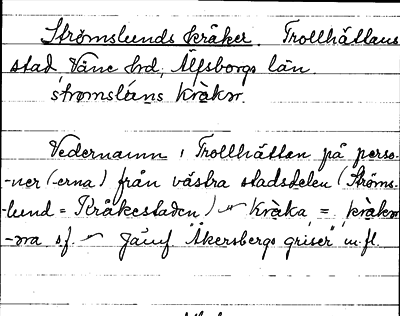 Strömslunds kråker. Trollhättans
stad, Väne hrd, Älfsborgs län.
strømslúns kràkɷr.
Vedernamn i Trollhättan på perso-
-ner (-erna) från västra stadsdelen (Ströms-
-lund = Kråkestaden) ~ kràka = kràkɷr
-na s.f. ~ Jämf. "Åkersbergs griser" m.fl.